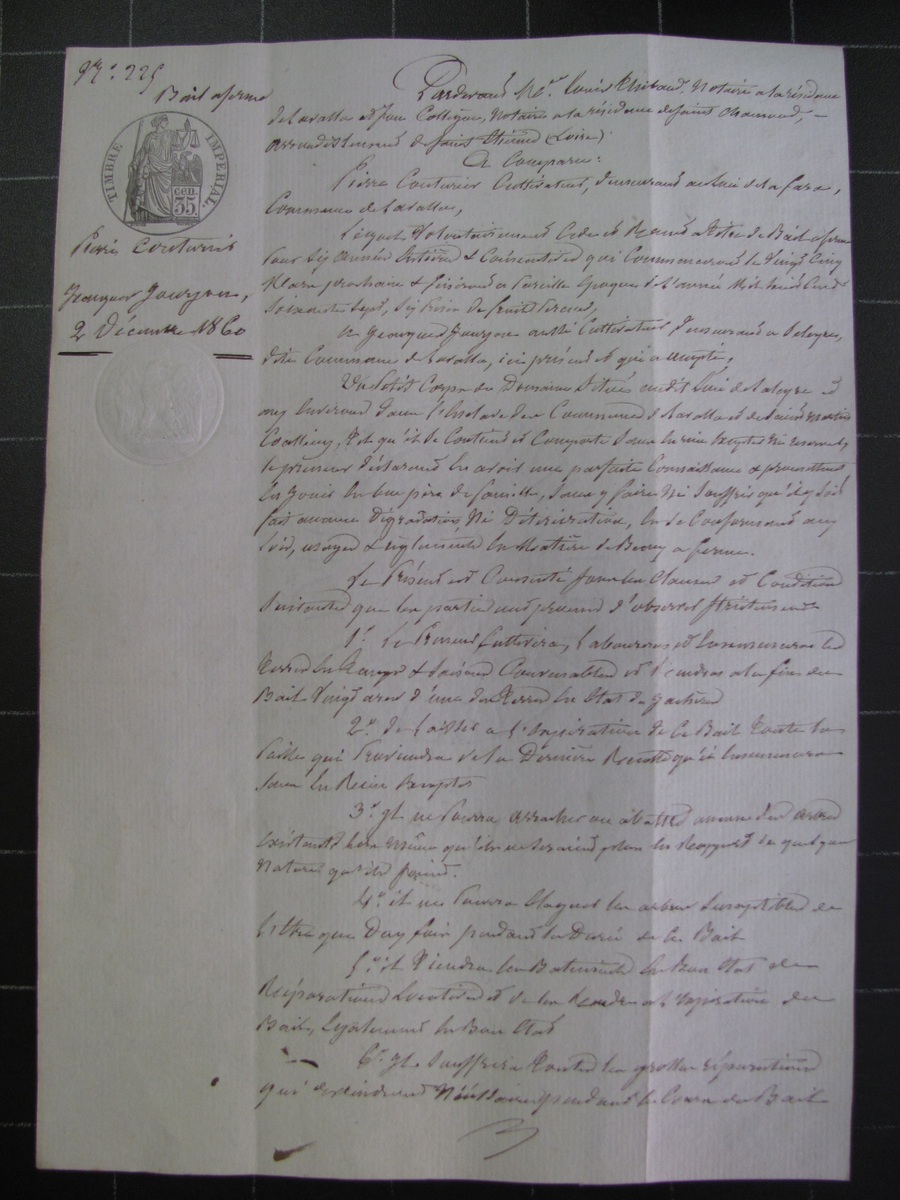 N.° 225
Bail a ferme
TIMBRE IMPERIAL
cen.
35
Pierre Couturier
Georges Jourjon,
2 Decembre 1860
Pardevant Me. Louis Thibaud, Notaire a la résidence
de Lavalla et Jean Notaire a la résidence de Saint Chamond,
arrondissement de Saint Etienne (Loire)
A Comparu:
Pierre Couturier Cultivateur, demeurant au lieu de la
Commune de Lavalla,
Lequel Volontairement Cede et Remet a titre de Bail a ferme
pour six années entières & Consecutives qui Commenceront le Vingt Cinq
Mars prochain & finiront a Pareille époque de l'année Mil huit Cent
Soixante Sept, six prises de fruits
a Georges Jourjon aussi Cultivateur, demeurant a
dite Commune de Lavalla, ici présent et qui accepte,
Un Petit Corps de Domaine Situé audit lieu de et
aux Environs dans l'Enclave des Communes de Lavalla et de Saint Martin
tel qu'il se Contient et Comporte sans en rien excepter ni reserver,
le preneur déclarant en avoir une parfaite Connaissance & promettant
en Jouir en bon père de famille, sans y faire Ni Souffrir qu'il y soit
fait aucune Dégradation, Ni Détérioration, en se Conformant aux
Lois, usages & règlements en Matière de Baux a ferme.
Le Présent est Consenti sous les Clauses et Conditions
Suivantes que les parties ont promis d'observer Strictement
1.° Le Preneur Cultivera, Labourera et Ensemencera les
terres en temps & saisons Convenables et rendra a la fin du
Bail Vingt ares d'une des terres en Etat de
2.° de laisser a l'Expiration de Ce Bail toute la
Paille qui Proviendra de la Dernière Recolte qu'il Ensemencera
sans en Rien Excepter
3.° Il ne Pourra arracher ou abattre aucune des arbres
existants hors même qu'ils ne seraient plus en Rapport de quelque
Nature qu'ils soient.
4.° il ne Pourra Elaguer les arbres Susceptibles de
l'être que Deux fois pendant la Durée de Ce Bail
5.° il tiendra les Batiments en Bon Etat de
Réparations Locatives et de les Rendre a l'Expiration du
Bail, Egalement en Bon Etat
6.° Il Souffrira toutes les grosses réparations
qui deviendront Nécessaires pendant le Cours du Bail